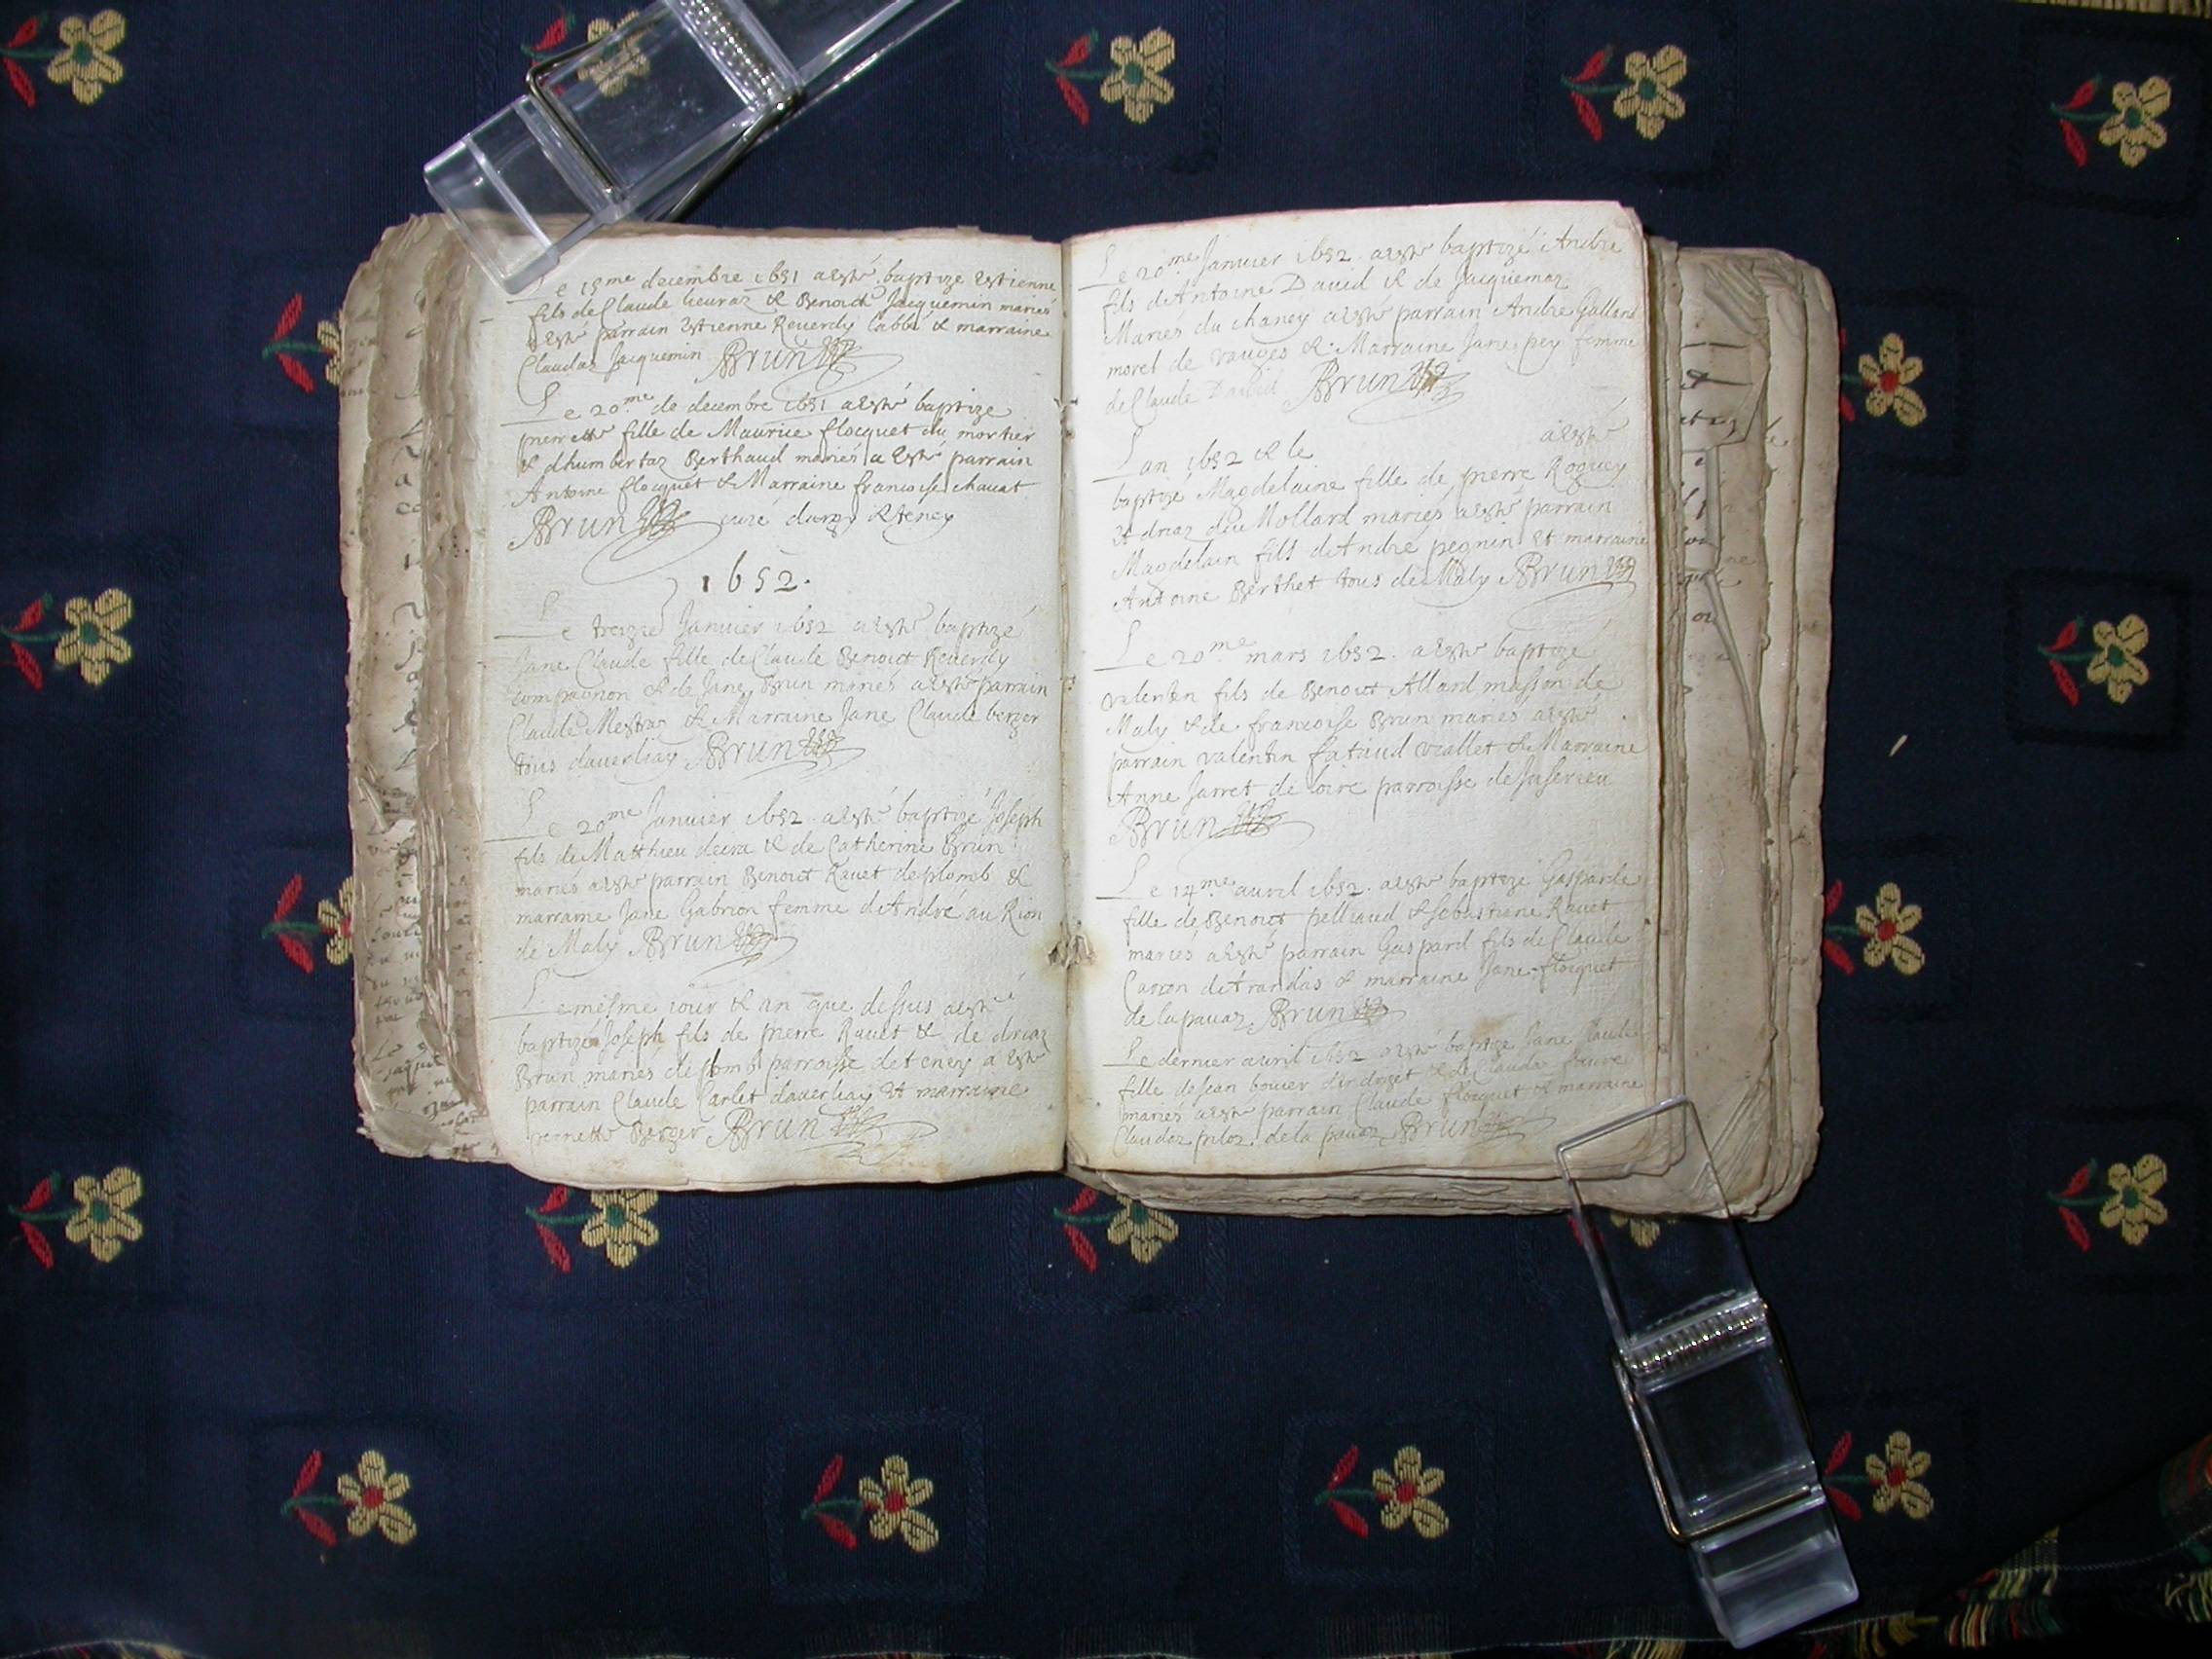 Le 15me decembre 1651 a esté baptize Estienne
fils de Claude lieuraz & Benoict Jacquemin mariés
a esté parrain Estienne Reuerdy l'abbé & marraine
Claudaz Jacquemin Brun
Le 20.me de decembre 1651 a esté baptize
pierrette fille de Maurice flocquet du mortier
& dhumbertaz Berthaud mariés a esté parrain
Antoine flocquet & Marraine francoise chauat
Brun curé darps & teney
1652.
Le treizie Januier 1652 a esté baptizé
Jane Claude fille de Claude Benoict Reuerdy
compagnon & de Jane Brun mariés a esté parrain
Claude Mestraz & Marraine Jane Claude berger
tous dauerliaz Brun
Le 20me Januier 1652. a esté baptizé Joseph
fils de Matthieu & de Catherine Brun
mariés a esté parrain Benoict Rauet de plomb &
marraine Jane Gabrion femme d'André au Rion
de Maly Brun
Le mesme iour & an que dessus a esté
baptizé Joseph fils de pierre Rauet & de driaz
Brun mariés de plomb parroisse de teney a esté
parrain Claude Carlet dauerliaz Et marraine
pernette Berger Brun
Le 20me Januier 1652. a esté baptizé Andre
fils d'Antoine Dauid & de Jacquemaz
Mariés du chaney a esté parrain Andre Galland
morel de vauges & Marraine Jane pey femme
de Claude Dauid Brun
Lan 1652 & le a esté
baptizé Magdelaine fille de pierre Roguey
Et driaz du Mollard mariés a esté parrain
Magdelain fils d'André pegnin Et marraine
Antoine Berthet tous de Maly Brun
Le 20me mars 1652. a esté baptizé
valentin fils de Benoict Allard masson de
Maly & de francoise Brun mariés a esté
parrain valentin fataud viallet & Marraine
Anne Jarret de loire parroisse de Juserieu
Brun
Le 14me auril 1652. a esté baptizé Gasparde
fille de Benoict pellraud & sebastiane Rauet
mariés a esté parrain Gaspard fils de Claude
Carron d'Arandas & marraine Jane flocquet
de la pauaz Brun
Le dernier auril 1652 a esté baptize Jane Claude
fille de Jean bouier & de Claudaz
mariés a esté parrain Claude flocquet & marraine
Claudaz piloz de la pauaz Brun